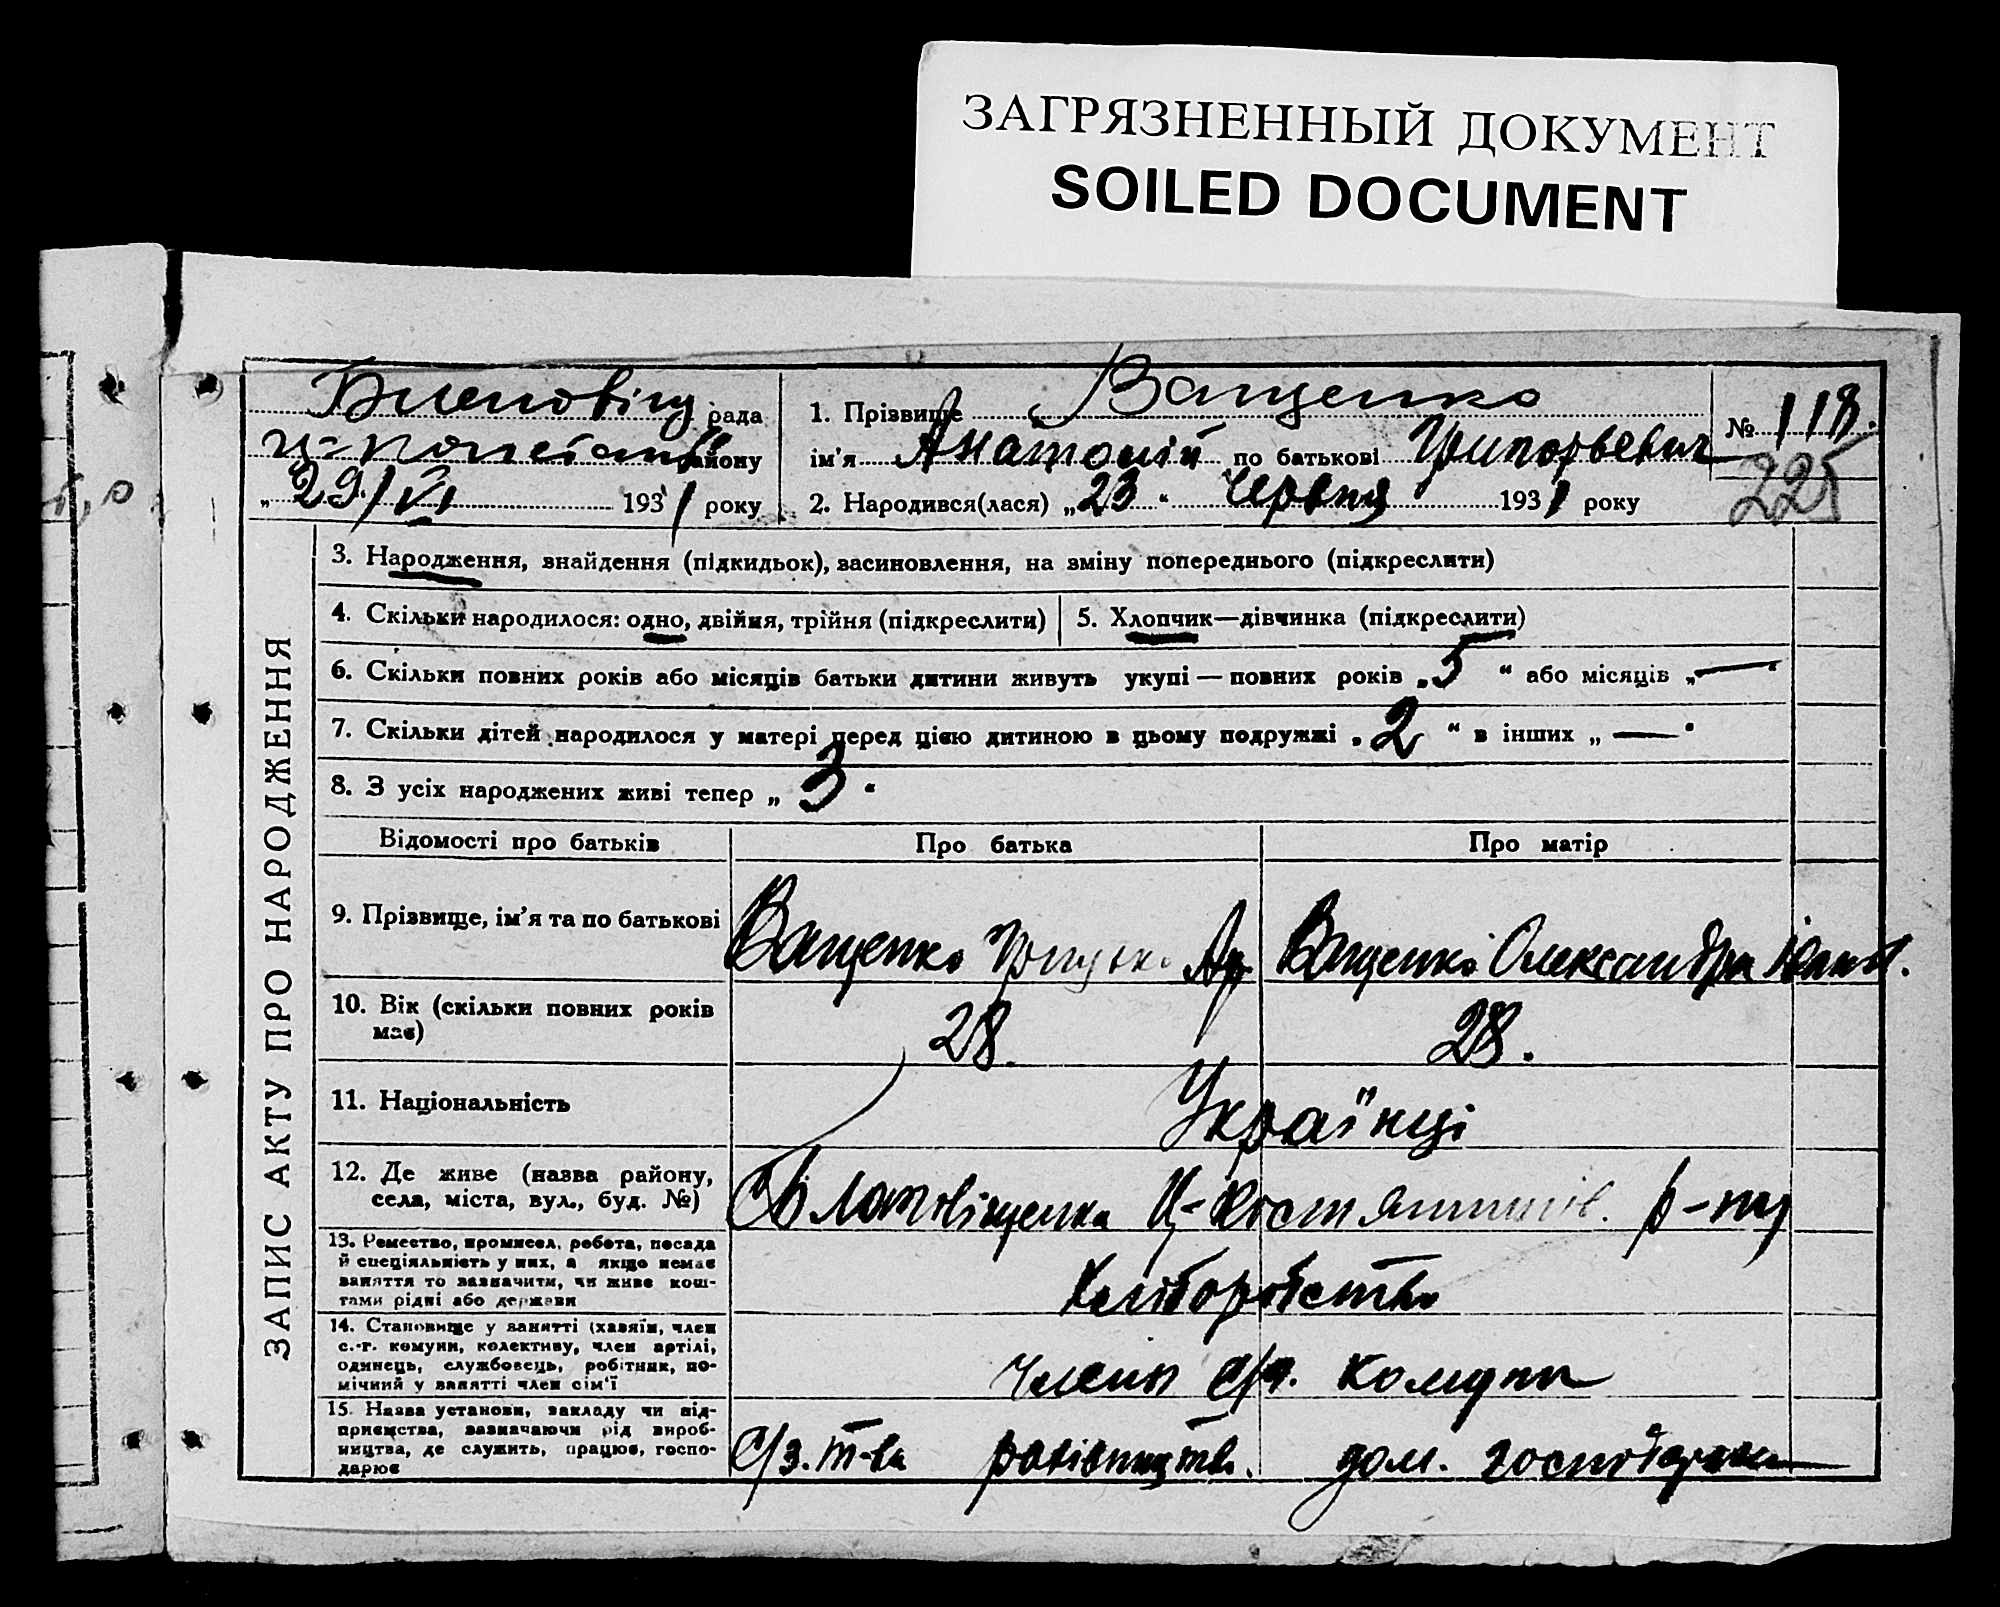 ЗАГРЯЗНЕННЫЙ ДОКУМЕНТ
SOILED DOCUMENT
рада
району
„ 29/VI 1931 року
1. Прізвище Ващенко
ім'я Анатолій по батькові
2. Народився(лася) „23“ Червня 1931 року
№ 118.
225
ЗАПИС АКТУ ПРО НАРОДЖЕННЯ
3. Народження, знайдення (підкидьок), засиновлення, на зміну попереднього (підкреслити)
4. Скільки народилося: одно, двійня, трійня (підкреслити)
5. Хлопчик—дівчинка (підкреслити)
6. Скільки повних років або місяців батьки дитини живуть укупі — повних років „5“ або місяців „—“
7. Скільки дітей народилося у матері перед цією дитиною в цьому подружжі „2“ в інших „—“
8. З усіх народжених живі тепер „3“
Відомості про батьків
Про батька
Про матір
9. Прізвище, ім'я та по батькові
Ващенко
Ващенко Олександра Іван.
10. Вік (скільки повних років має)
28.
28.
11. Національність
Українці
12. Де живе (назва району,
села, міста, вул., буд. №)
р-ну
13. Ремество, промисел, робота, посада
й спеціяльність у них, а якщо немає
заняття то зазначити, чи живе кош-
тами рідні або держави
Хліборобство
14. Становище у занятті (хазяїн, член
с.-г. комуни, колективу, член артілі,
одинець, службовець, робітник, по-
мічний у занятті член сім'ї
члени с/г. комуни
15. Назва установи, закладу чи під-
приємства, зазначаючи рід вироб-
ництва, де служить, працює, госпо-
дарює
дом. господарка